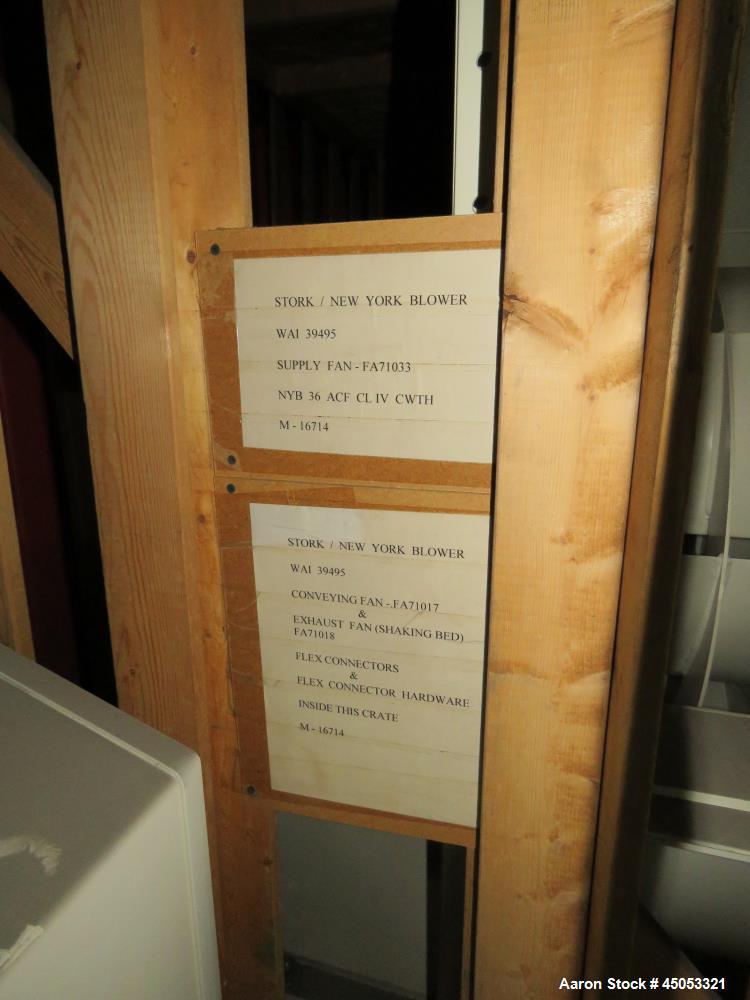 STORK / NEW YORK BLOWER
WAI 39495
SUPPLY FAN - FA71033
NYB 36 ACF CL IV CWTH
M - 16714
STORK / NEW YORK BLOWER
WAI 39495
CONVEYING FAN -.FA71017
&
EXHAUST FAN (SHAKING BED)
FA71018
FLEX CONNECTORS
&
FLEX CONNECTOR HARDWARE
INSIDE THIS CRATE
M - 16714
Aaron Stock # 45053321